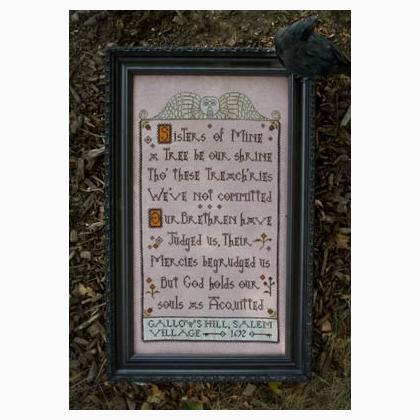 Sisters of Mine
A Tree be our shrine
Tho' these Treach'ries
We've not committed
Our Brethren have
Judged us, Their
Mercies begrudged us
But God holds our
souls as Acquitted
Gallows Hill, Salem
Village 1692